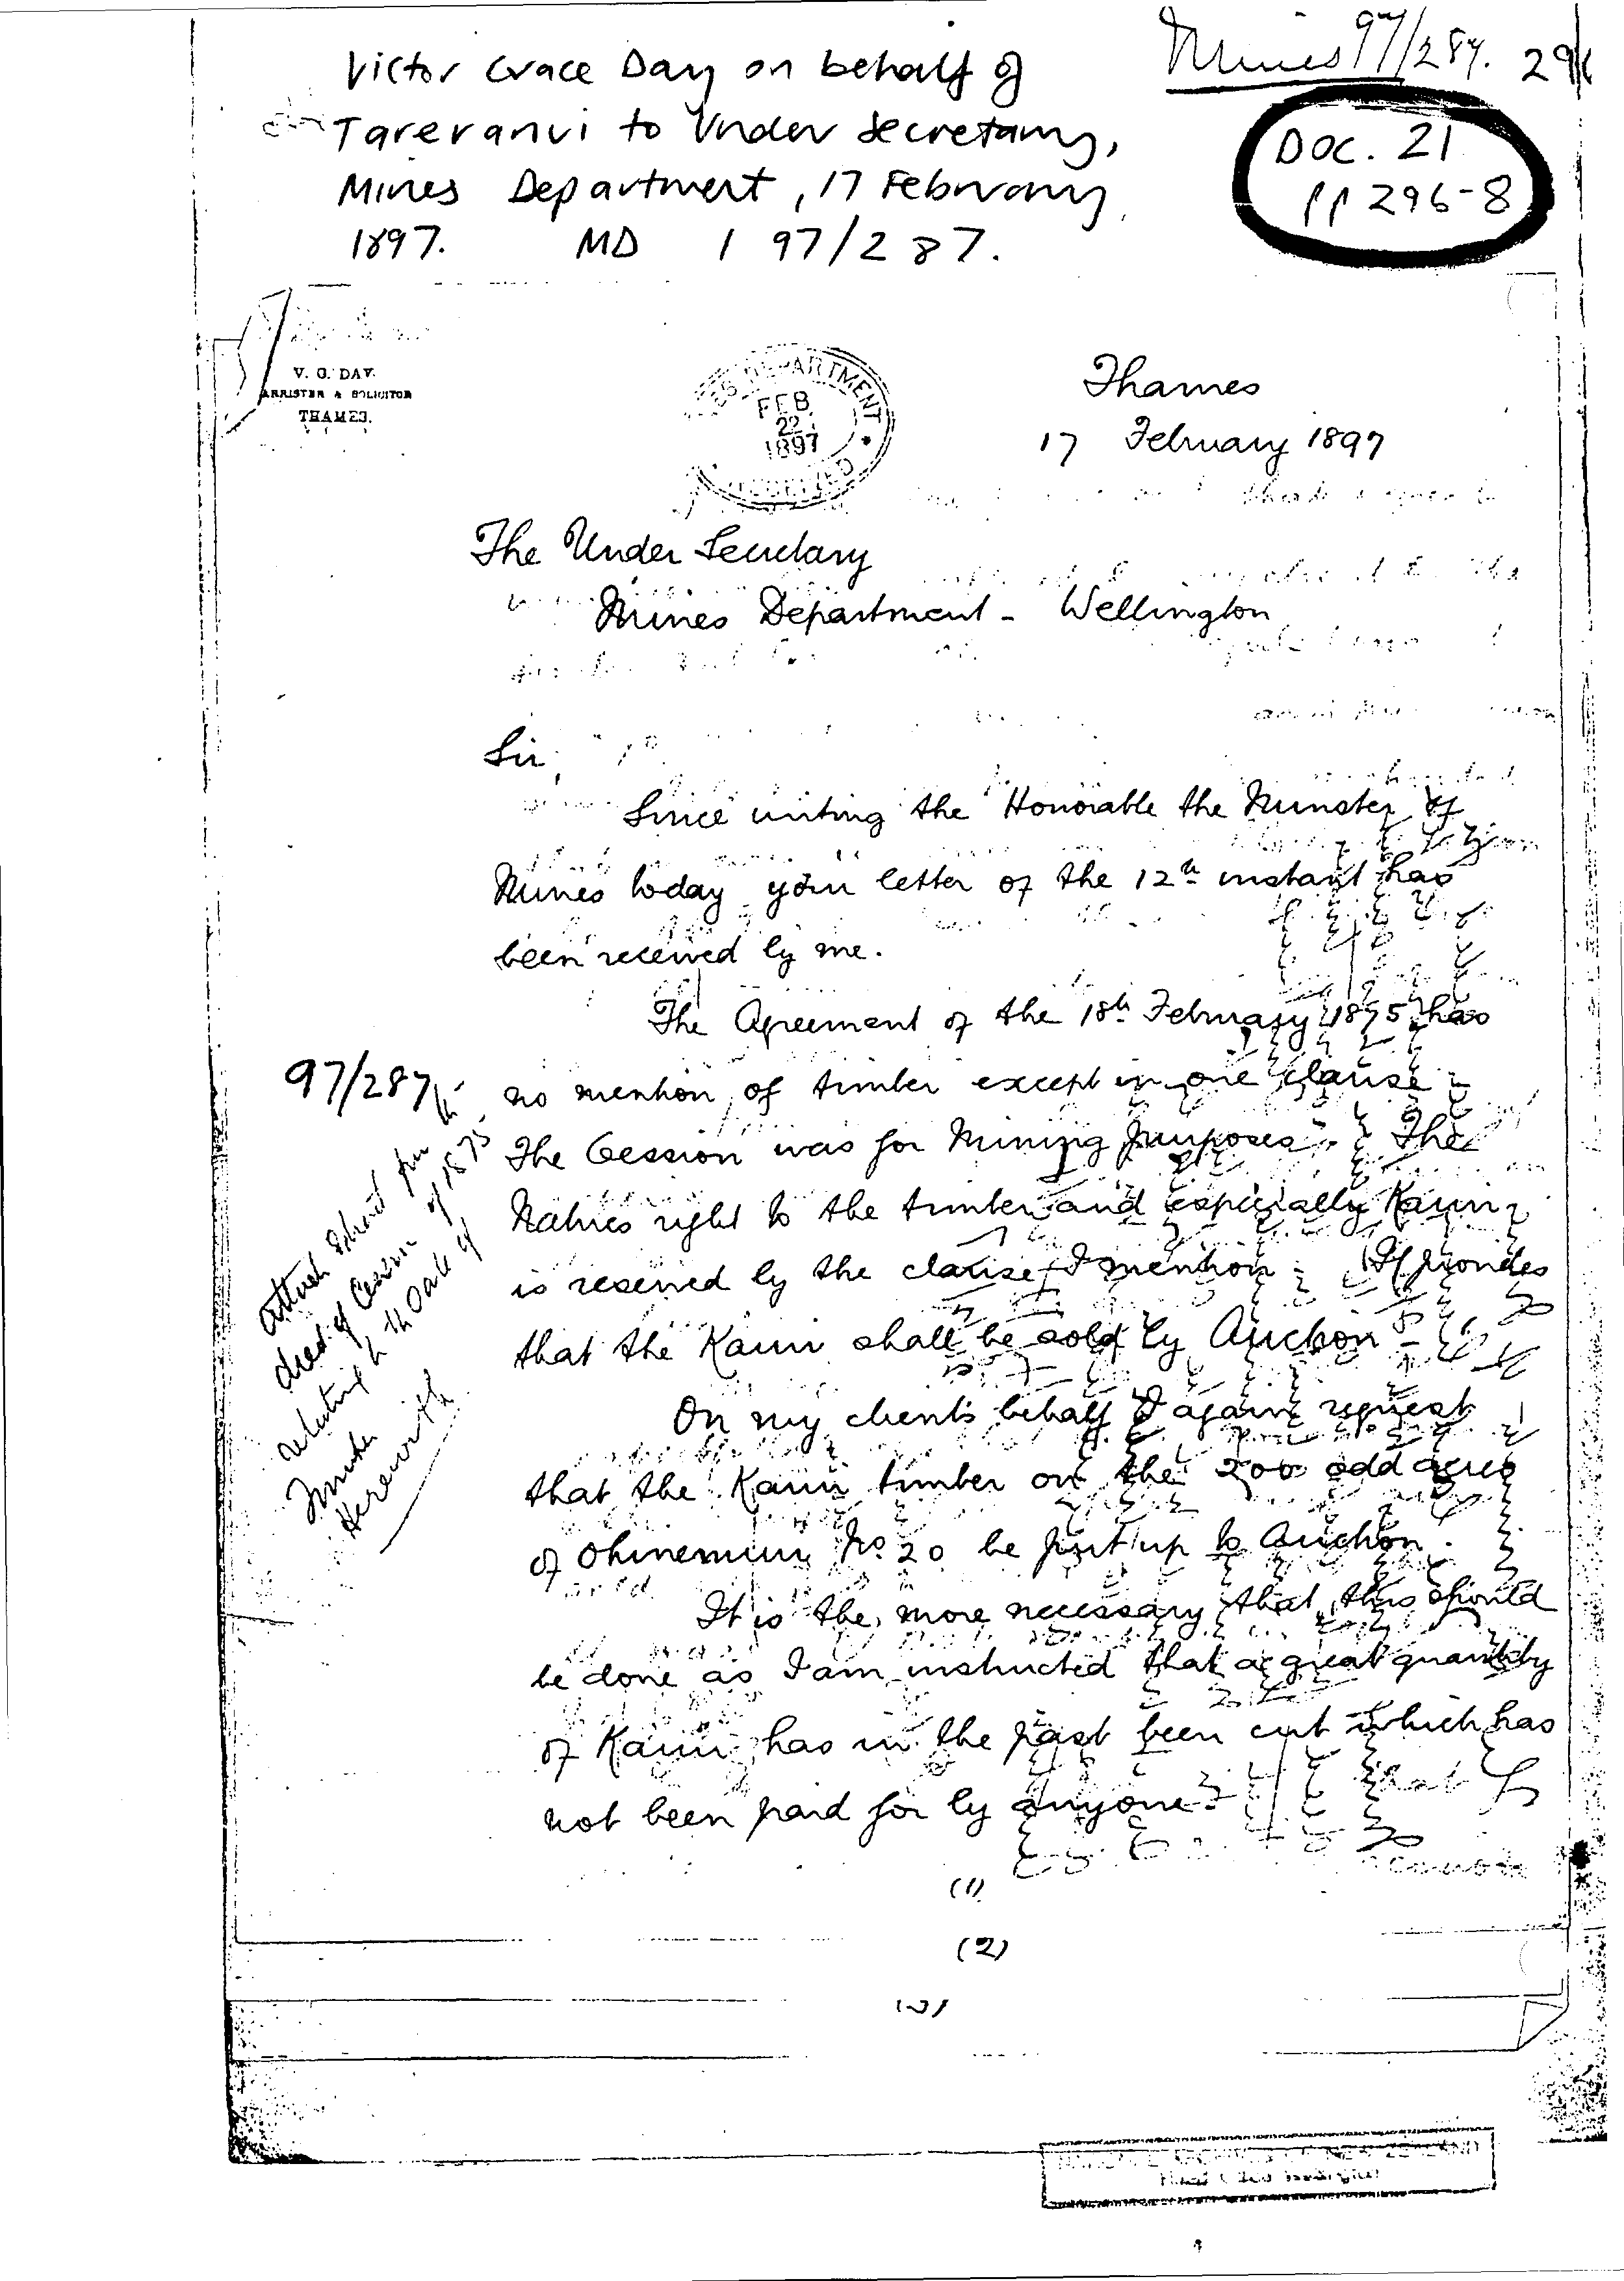 Victor Grace Day on behalf of
Tareranui to Under Secretary,
Mines Department, 17 February
1897. MD 1 97/287.
Mines 97/287. 296
DOC. 21
pp 296-8
V. G. DAY.
BARRISTER & SOLICITOR
THAMES.
MINES DEPARTMENT
FEB
22
1897
RECEIVED
Thames
17 February 1897
The Under Secretary
Mines Department - Wellington
Sir,
Since writing the Honorable the Minister of
Mines today your letter of the 12th instant has
been received by me.
The Agreement of the 18th February 1875 has
no mention of timber except in one clause -
The Cession was for Mining purposes. The
Natives right to the timber and especially Kauri
is reserved by the clause I mention - It provides
that the Kauri shall be sold by Auction -
On my client's behalf I again request
that the Kauri timber on the 200 odd acres
of Ohinemuri No 20 be put up to Auction.
It is the more necessary that this should
be done as I am instructed that a great quantity
of Kauri has in the past been cut which has
not been paid for by anyone -
97/287
Attach extract from the
deed of Cession of 1875
relating to the sale of
Timber
Herewith
(1)
(2)
(3)